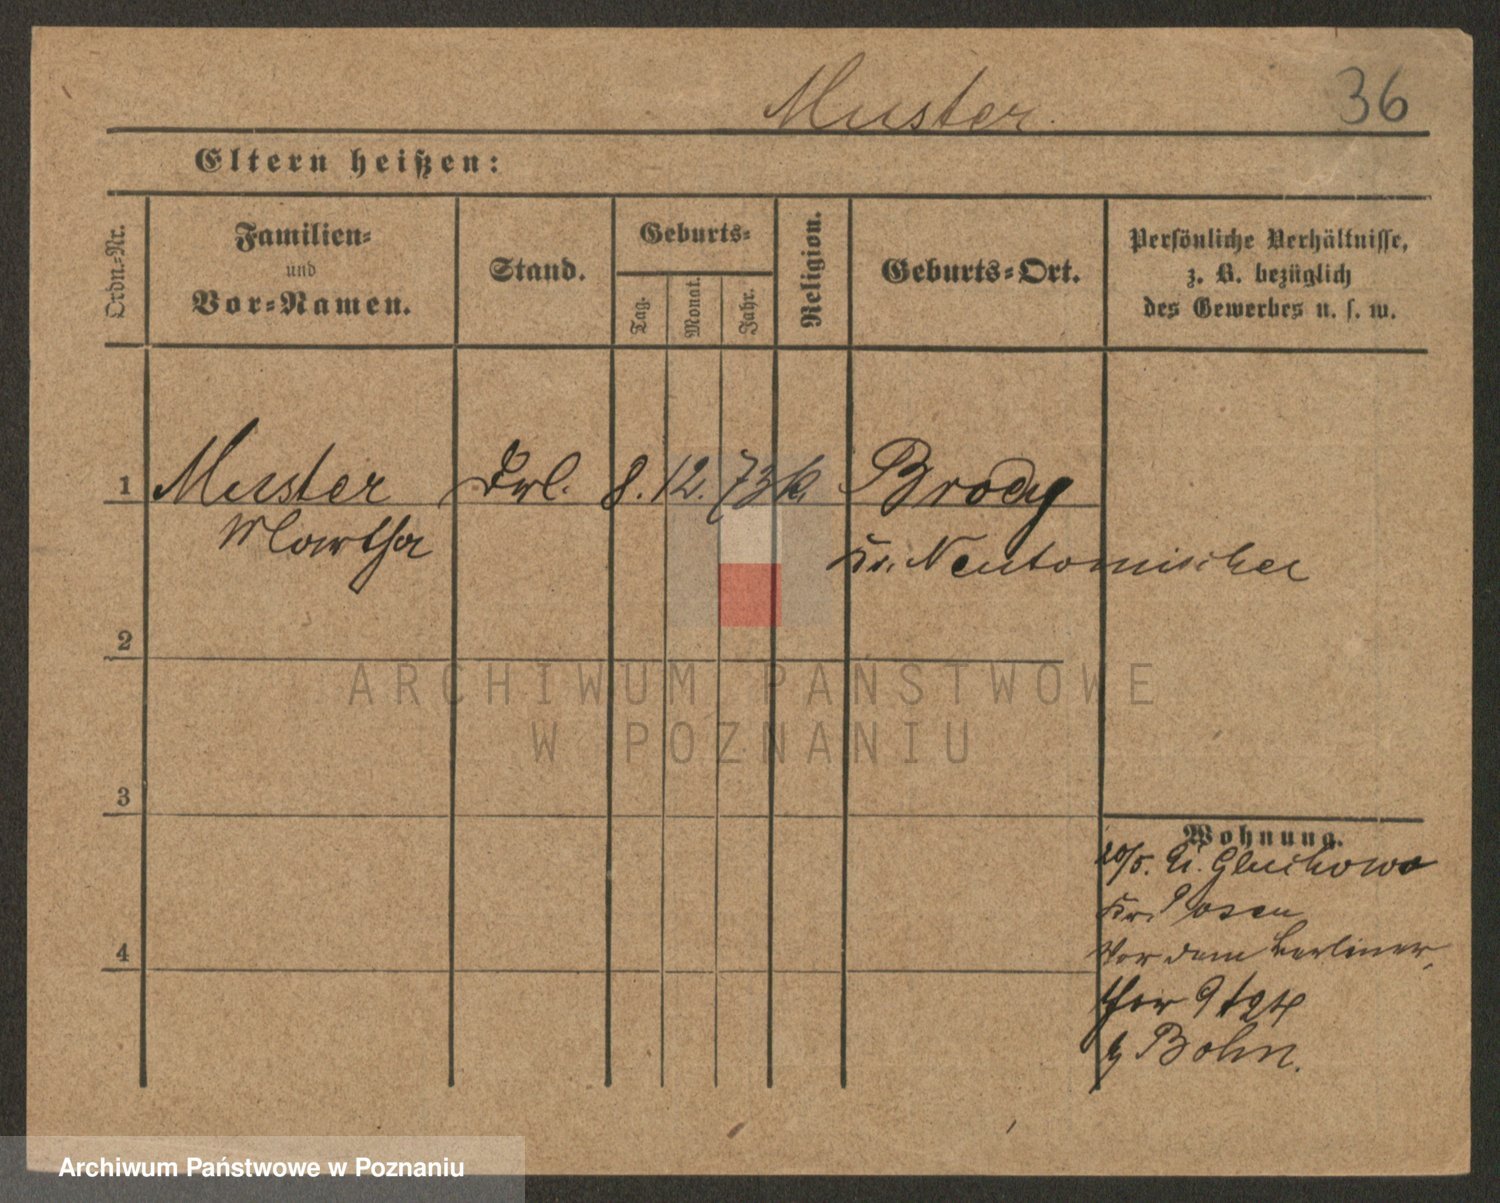 Muster. 36
Eltern heißen:
Ordn.-Nr.
Familien-
und
Vor-Namen.
Stand.
Geburts-
Tag.
Monat.
Jahr.
Religion.
Geburts-Ort.
Persönliche Verhältnisse,
z. B. bezüglich
des Gewerbes u. s. w.
1 Muster Frl. 8. 12. 73 k. Brody
Martha Kr. Neutomischel
2
ARCHIWUM PAŃSTWOWE
W POZNANIU
3
Wohnung.
20/5. Gluchowo
Kr. Posen
4
Vor dem Berliner
thor
b Bohn.
Archiwum Państwowe w Poznaniu